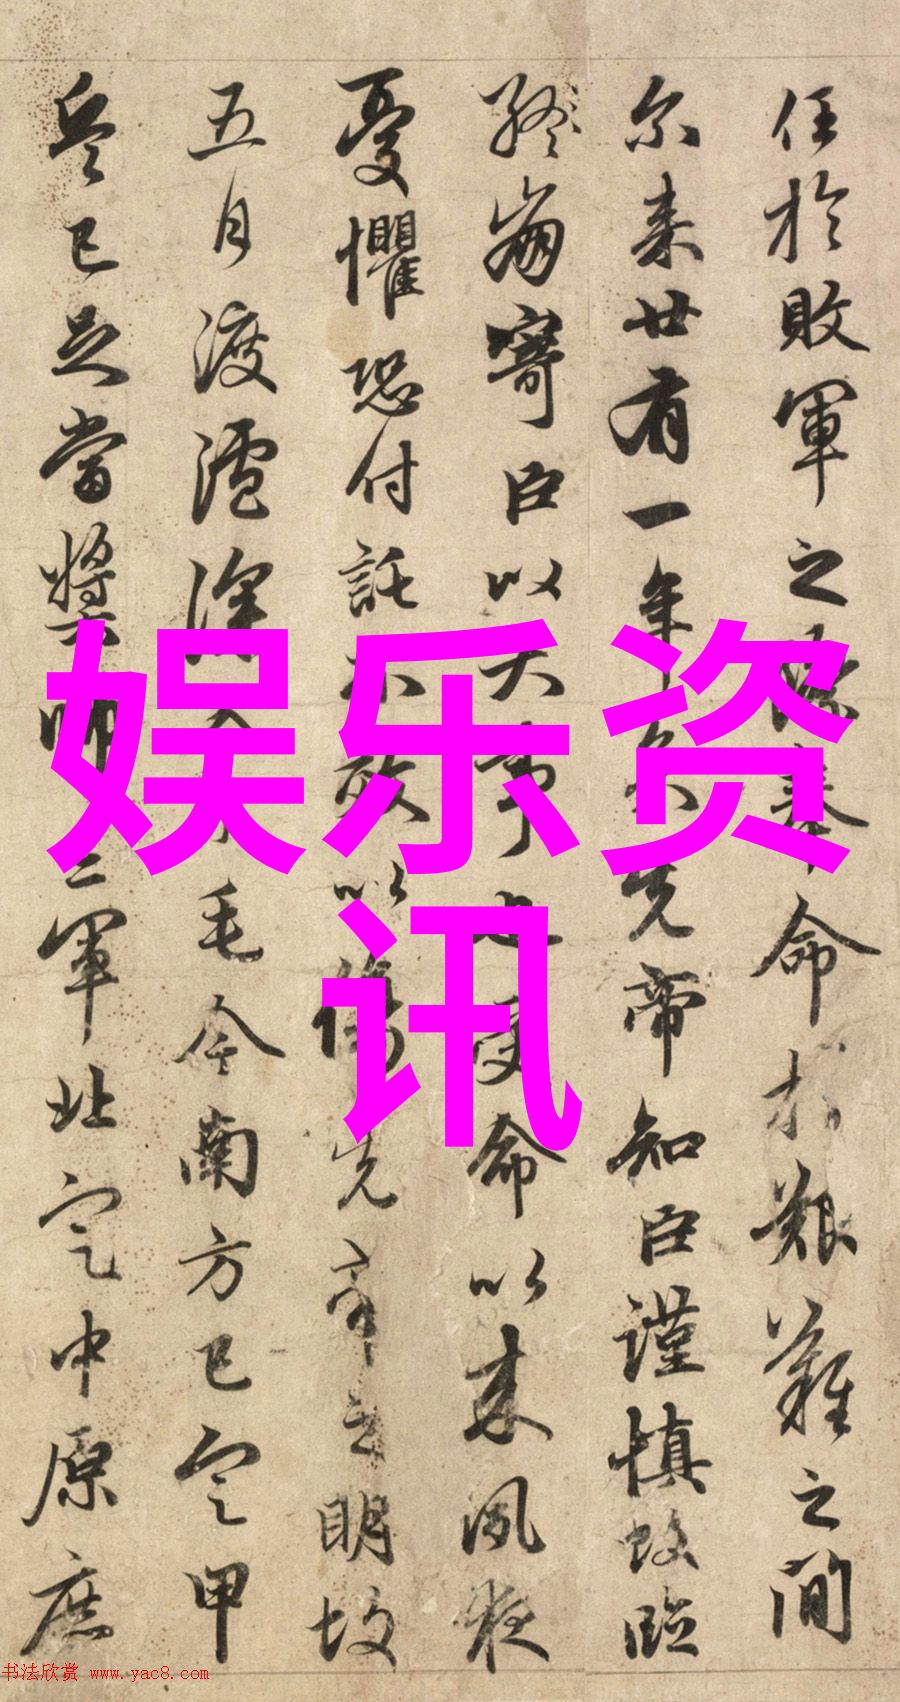 任於敗軍之際奉命於艱難之間
尔来廿有一年矣先帝知臣謹慎故臨
終崩寄臣以大事也受命以来夙夜
憂懼恐付託不效以傷先帝之明故
五月渡瀘深入毛今南方已定甲
兵已足當獎帥三軍北定中原庶
娱乐资
讯
书法欣赏 www.yac8.com